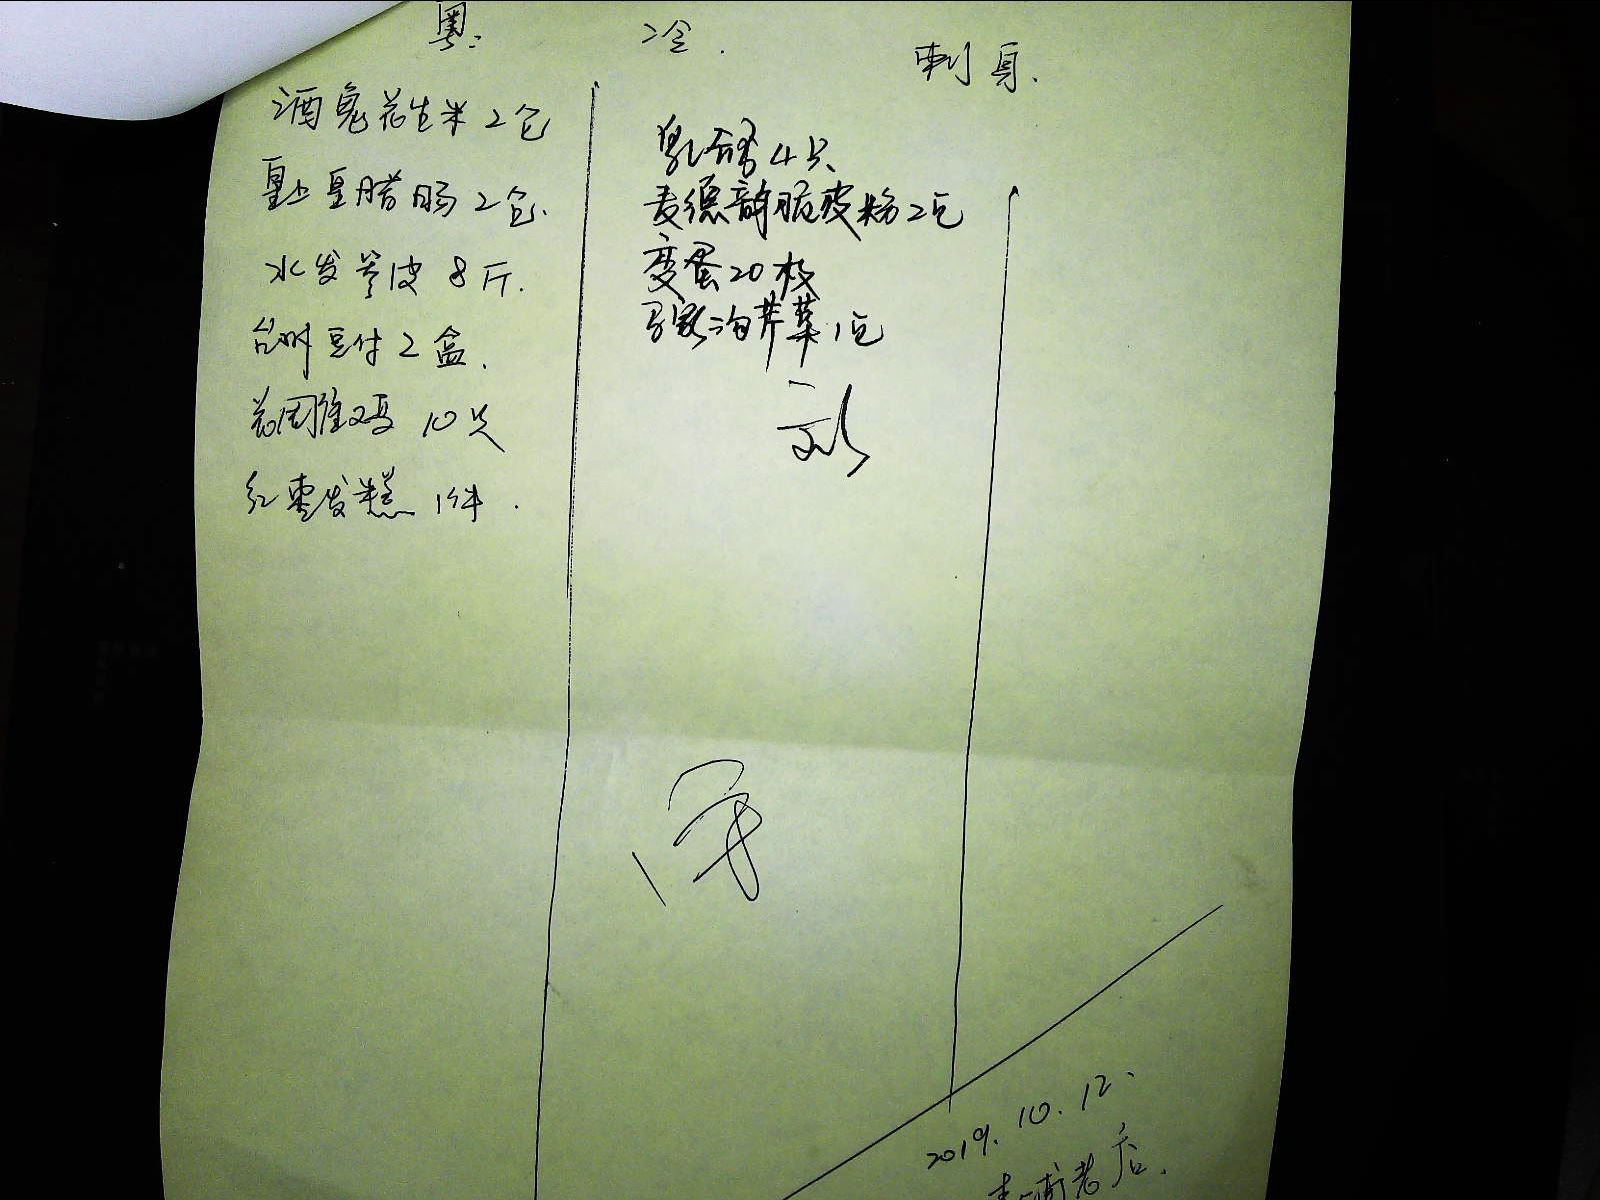 粤：
冷.
刺身.
酒鬼花生米2包
皇上皇腊肠2包.
水发 皮8斤.
台州豆付2盒.
花雕鸡10只
红枣发糕1件.
乳鸽4只
麦德 脆皮粉2包
变蛋20枚
海芹菜1包
刘
2019.10.12.
老店.